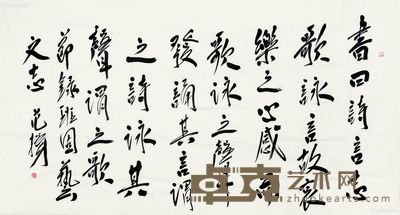 書曰詩言志
歌詠言故哀
樂之心感而
歌詠之聲
發誦其言謂
之詩詠其
聲謂之歌
節錄班固藝
文志
艺术网